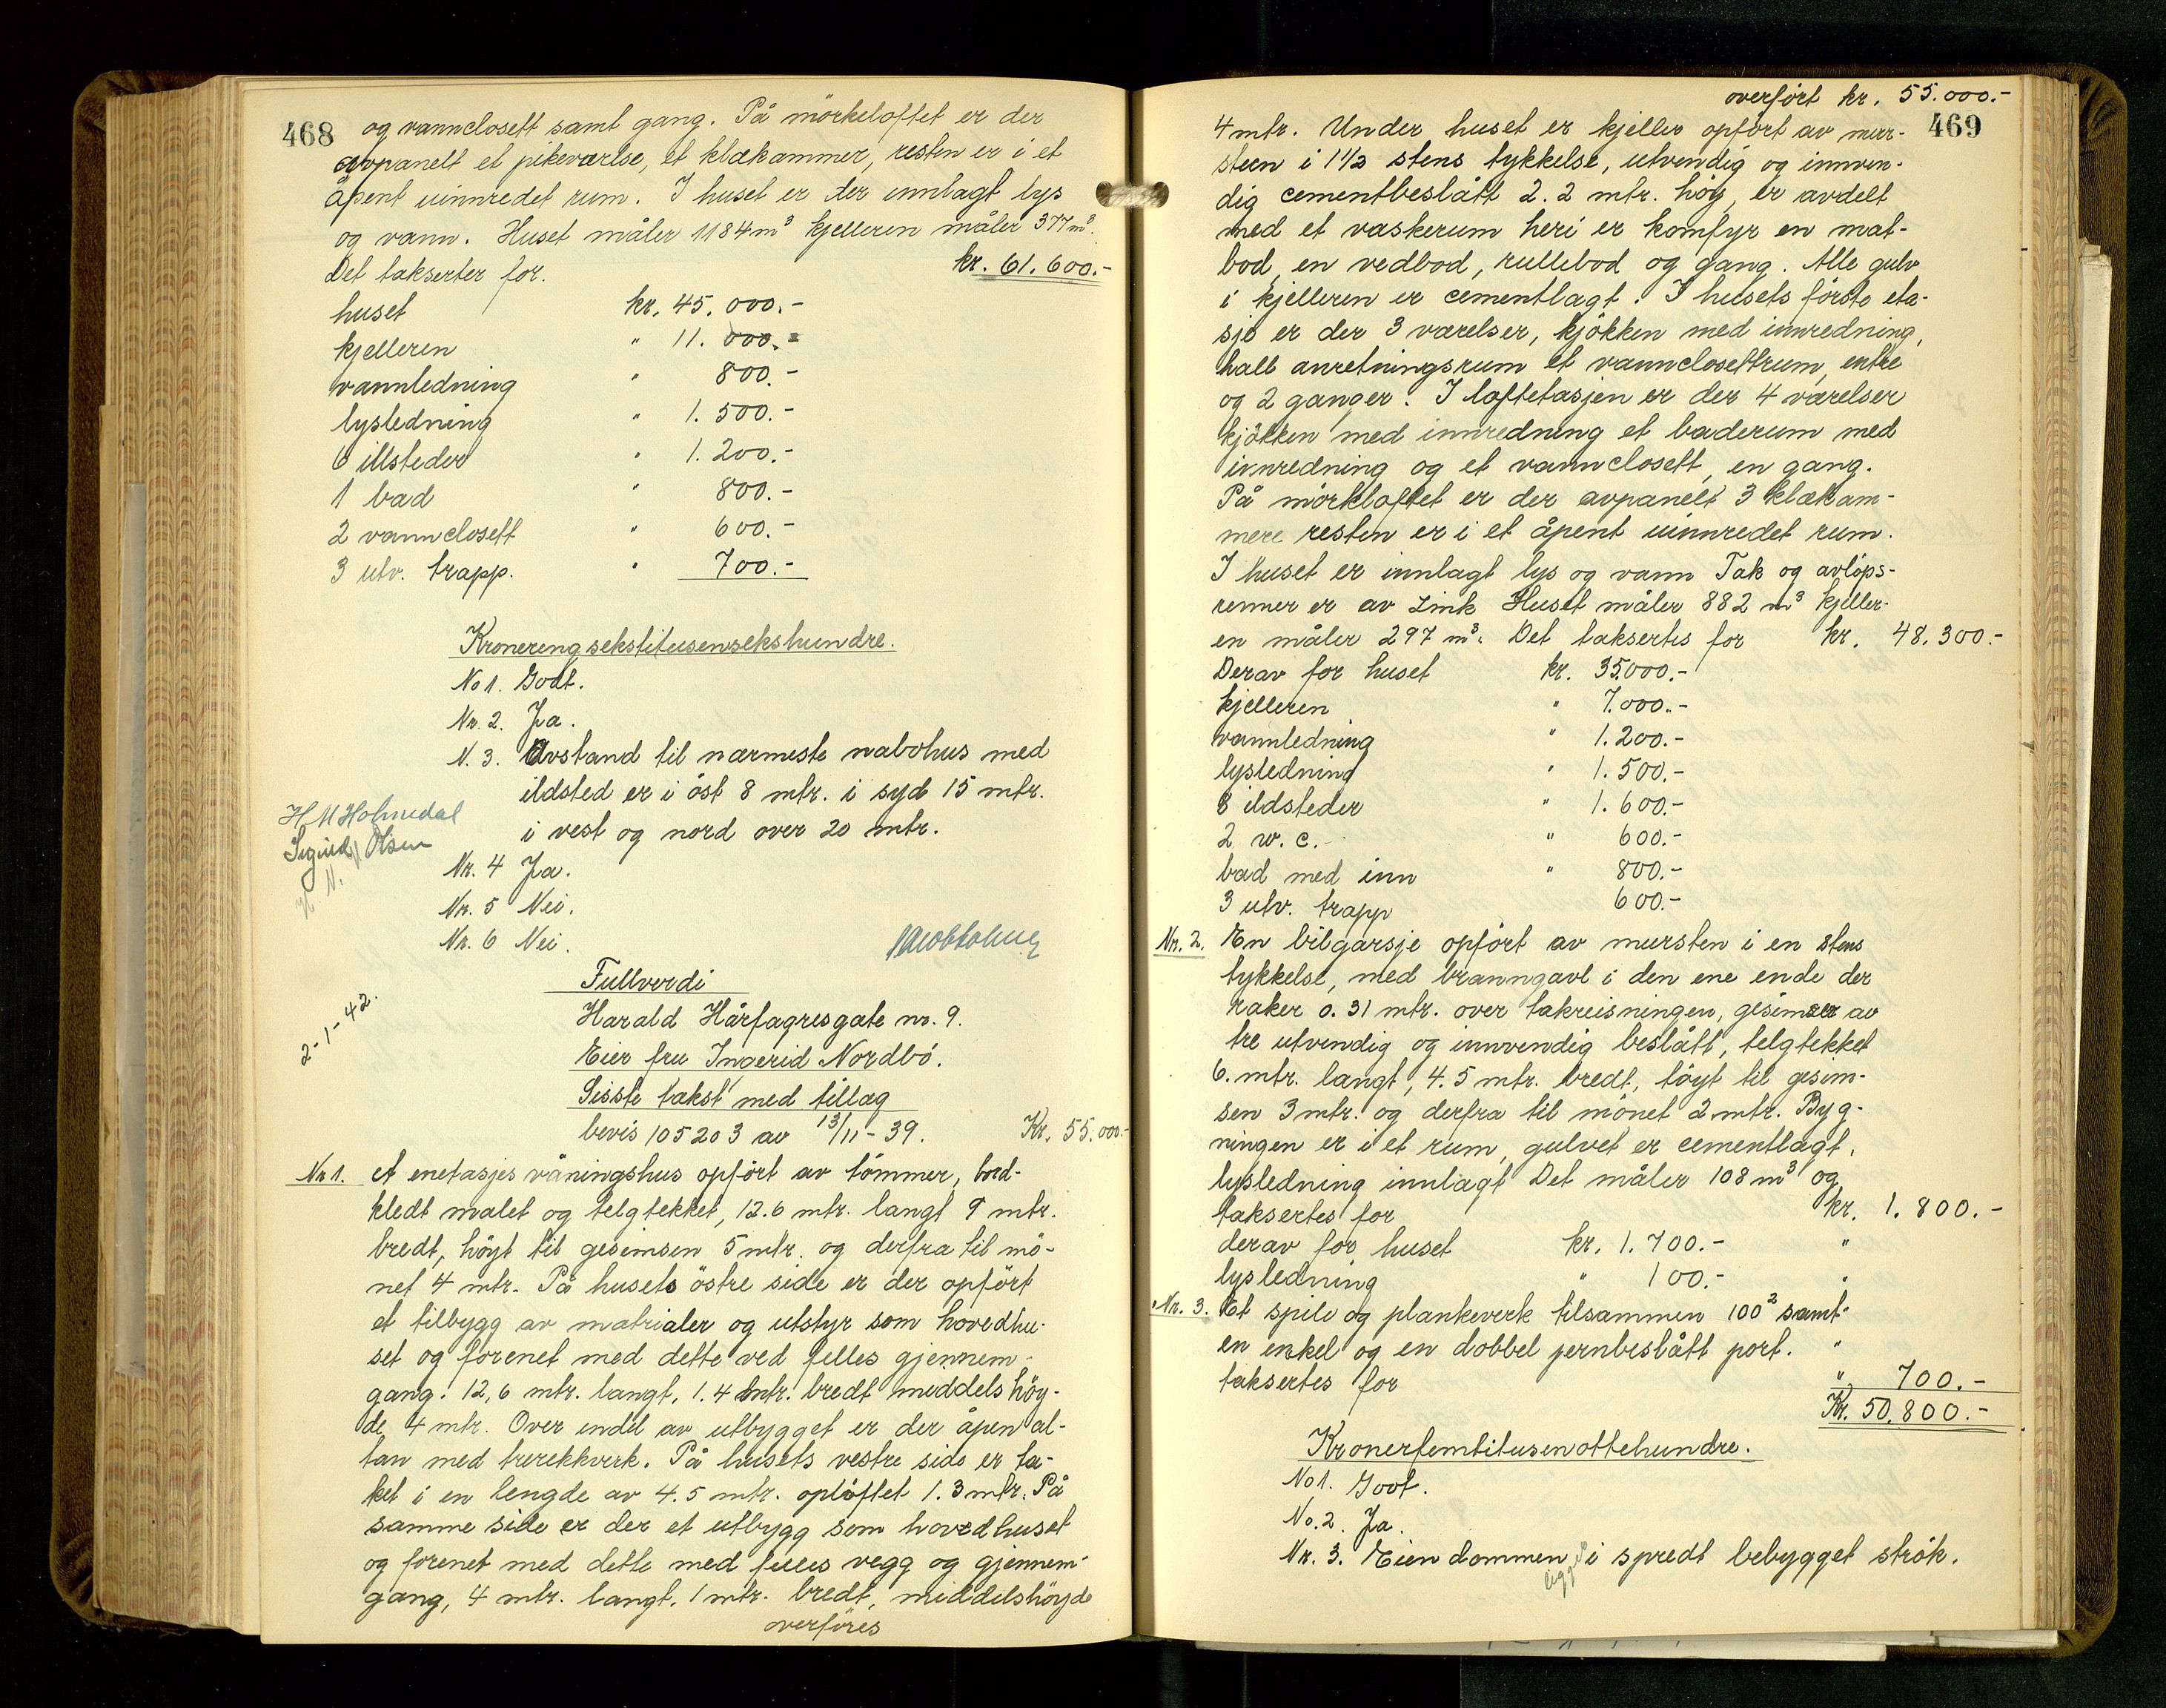 468
og vannclosett samt gang. På mörkeloftet er der
avpanelt et pikeværlse, et klækammer, resten er i et
åpent uinnredet rum. I huset er der innlagt lys
og vann. Huset måler 1184 m³ kjelleren måler 377 m³.
Det takserter for. kr. 61.600.-
huset kr. 45.000.-
kjelleren " 11.000.-
vannledning " 800.-
lysledning " 1.500.-
6 illsteder " 1.200.-
1 bad " 800.-
2 vannclosett " 600.-
3 utv. trapp. " 700.-
Kronerengsekstitusensekshundre.
No 1. Godt.
Nr. 2. Ja.
N. 3. Avstand til nærmeste nabohus med
ildsted er i öst 8 mtr. i syd 15 mtr.
i vest og nord over 20 mtr.
H M Holmedal
Sigurd Olsen
Nr. 4 Ja.
Nr. 5 Nei.
Nr. 6 Nei.
Fullverdi
2-1-42.
Harald Hårfagresgate nr. 9.
Eier fru Ingerid Nordbö.
Sisste takst med tillag
bevis 105203 av 13/11-39. Kr. 55.000.-
Nr 1. et enetasjes våningshus opfört av tömmer, bord-
kledt malet og telgtekket, 12.6 mtr. langt 9 mtr.
bredt, höyt til gesemsen 5 mtr. og derfra til mö-
net 4 mtr. På husets östre side er der opfört
et tilbygg av matrialer og utstyr som hovedhu-
set og forenet med dette ved felles gjennem-
gang. 12,6 mtr. langt, 1.4 mtr. bredt middels höy-
de 4 mtr. Over endel av utbygget er der åpen al-
tan med trerekkverk. På husets vestre side er ta-
ket i en lengde av 4.5 mtr. oplöftet 1.3 mtr. På
samme side er der et utbygg som hovedhuset
og forenet med dette med felles vegg og gjennem-
gang, 4 mtr. langt, 1 mtr. bredt, middelshöyde
overföres
overfört kr. 55.000.-
469
4 mtr. Under huset er kjeller opfört av mur-
steen i 1 1/2 stens tykkelse, utvendig og innven-
dig cementbeslått 2.2 mtr. höy, er avdelt
med et vaskerum heri er komfyr en mat-
bod, en vedbod, rullebod og gang. Alle gulv
i kjelleren er cementlagt. I husets förste eta-
sje er der 3 værelser, kjökken med innredning,
hall anretningsrum et vannclosettrum, entre
og 2 ganger. I loftetasjen er der 4 værelser
kjökken med innredning et baderum med
innredning og et vannclosett, en gang.
På mörkloftet er der avpanelt 3 klækam-
mere resten er i et åpent uinnredet rum.
I huset er innlagt lys og vann Tak og avlöps-
renner er av zink Huset måler 882 m³ kjeller-
en måler 297 m³. Det taksertes for kr. 48.300.-
Derav for huset kr. 35.000.-
kjelleren " 7.000.-
vannledning " 1.200.-
lysledning " 1.500.-
8 ildsteder " 1.600.-
2 w. c. " 600.-
bad med inn " 800.-
3 utv. trapp 600.-
Nr. 2. En bilgarsje opfört av mursten i en stens
tykkelse, med branngavl i den ene ende der
raker o. 31 mtr. over takreisningen, gesimser av
tre utvendig og innvendig beslått, telgtekket
6. mtr. langt, 4.5 mtr. bredt, höyt til gesim-
sen 3 mtr. og derfra til mönet 2 mtr. Byg-
ningen er i et rum, gulvet er cementlagt,
lysledning innlagt Det måler 108 m³ og
taksertes for kr. 1.800.-
derav for huset kr. 1.700.- "
lysledning " 100.- "
Nr. 3. Et spile og plankeverk tilsammen 100² samt
en enkel og en dobbel jernbeslått port. "
taksertes for " 700.-
Kr. 50.800.-
Kronerfemtitusenottehundre.
No 1. Godt.
No. 2. Ja.
Nr. 3. Eiendommen i spredt bebygget strök.